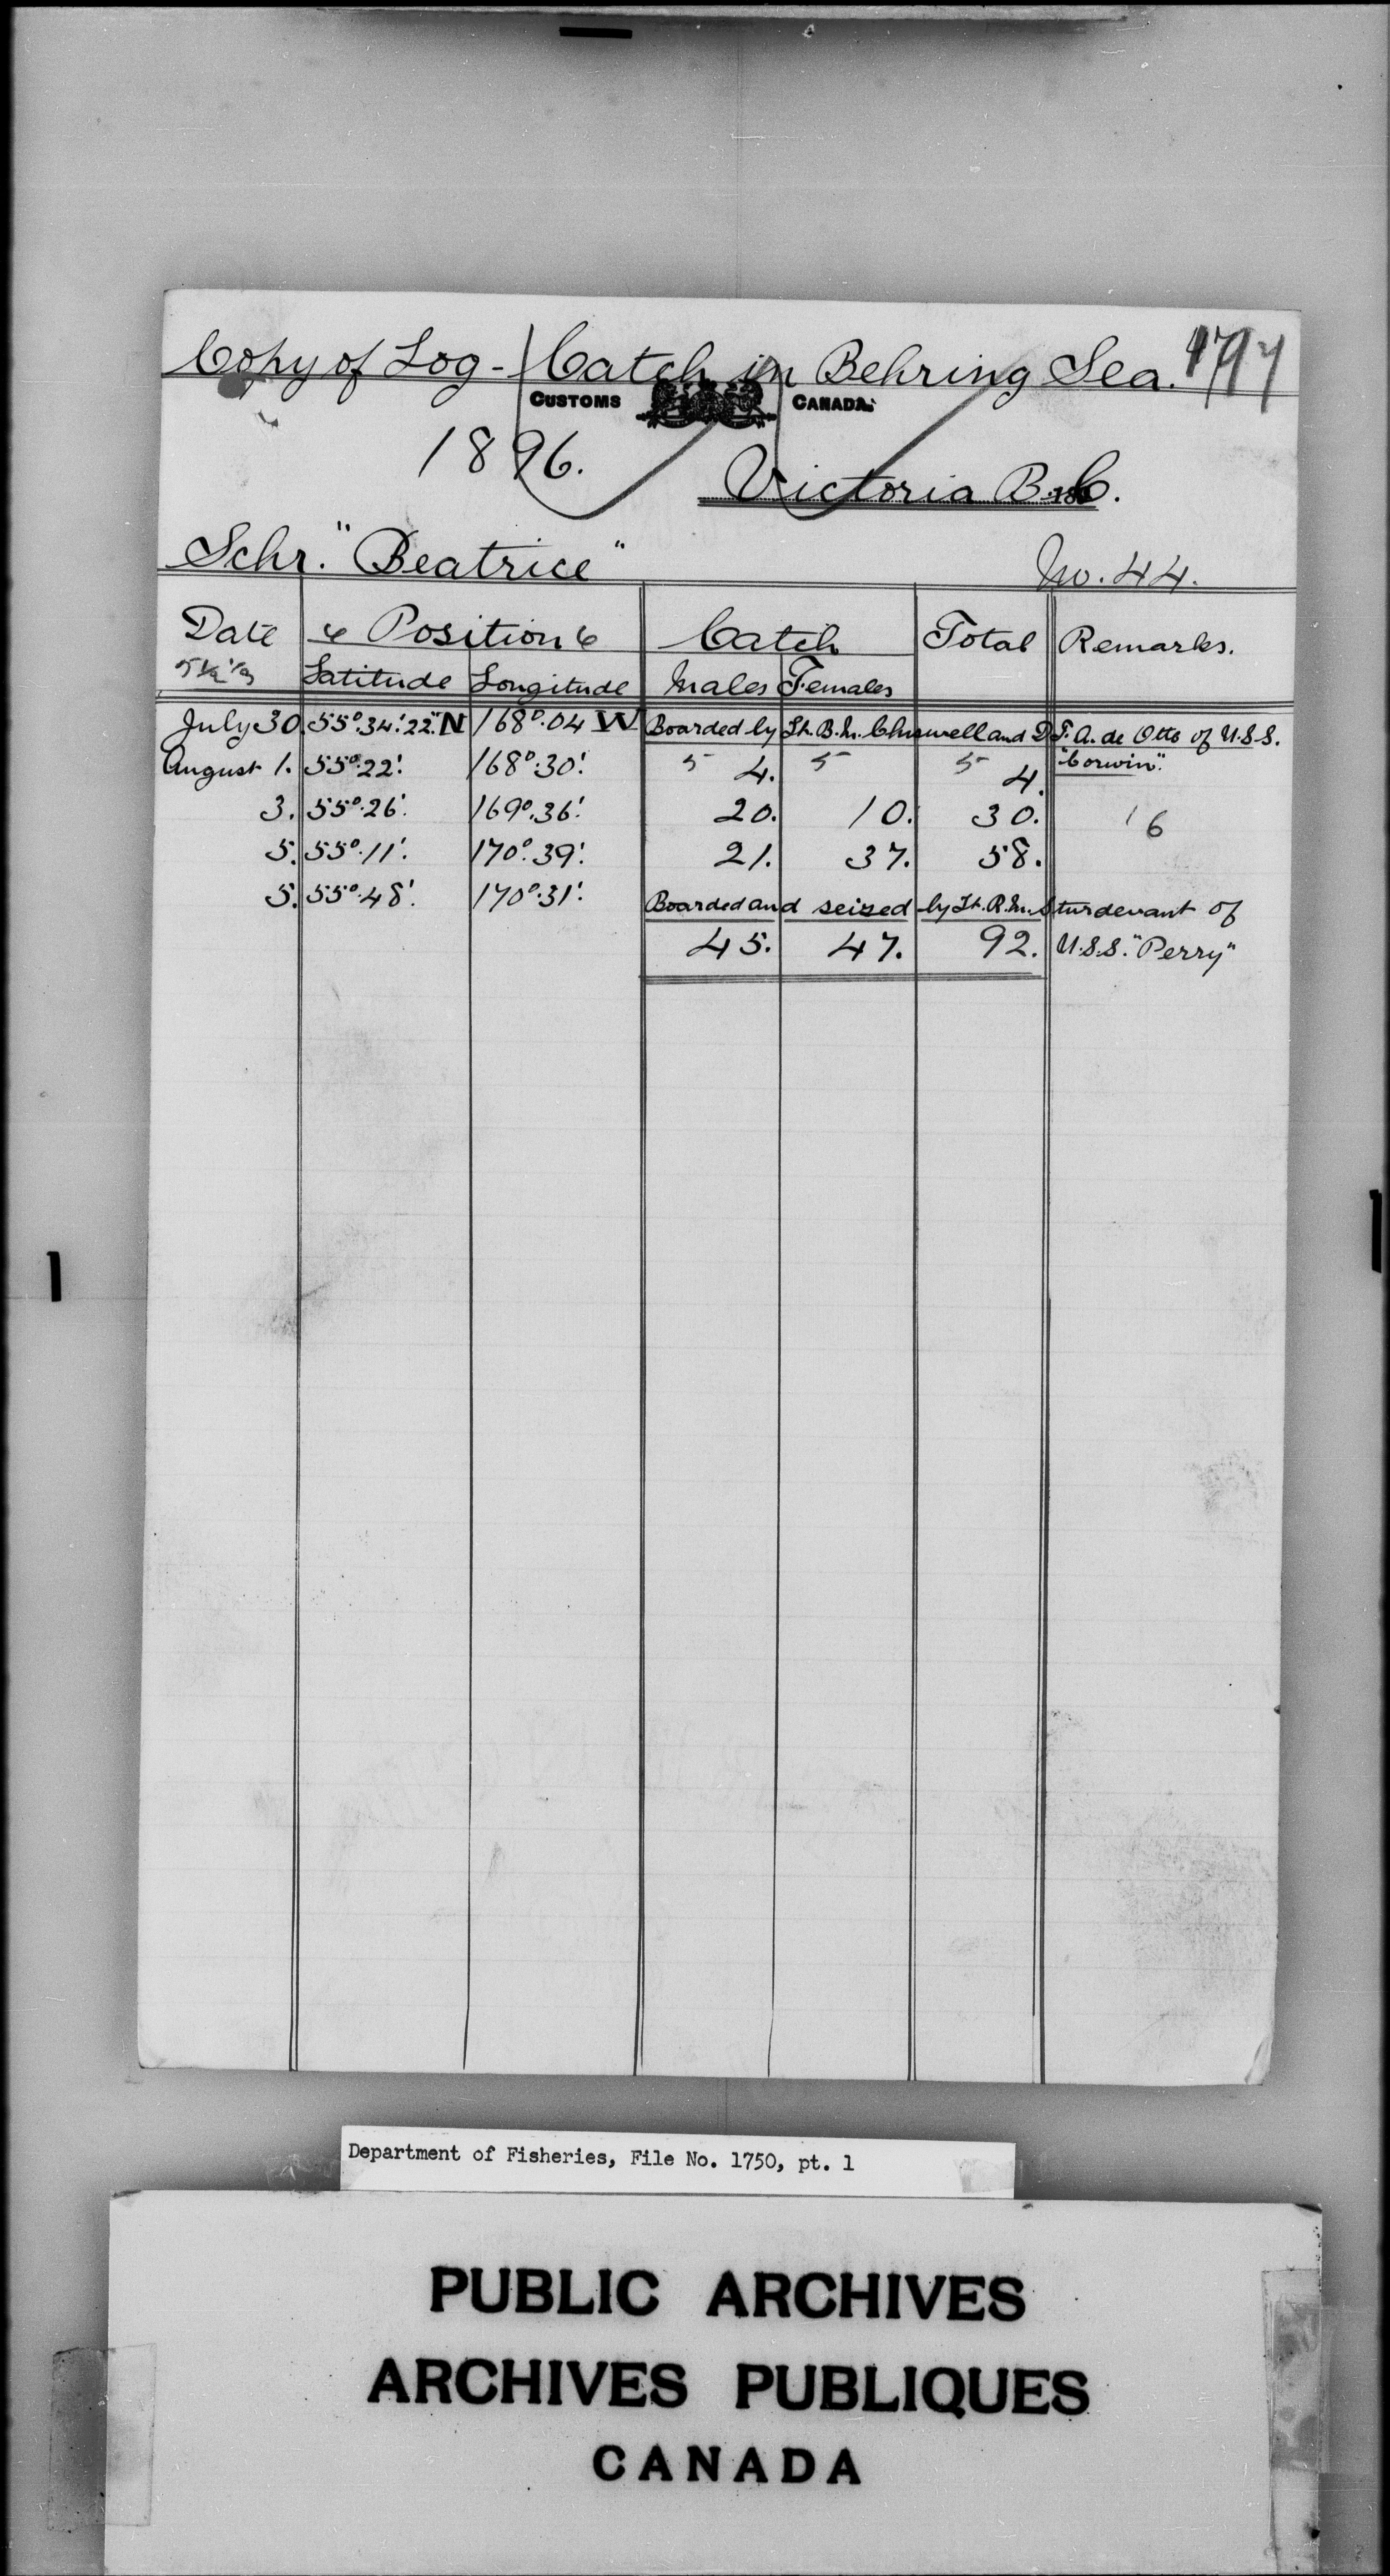 Copy of Log - Catch in Behring Sea.
CUSTOMS CANADA.
1896.
Victoria B.C.
Schr. "Beatrice" No. 44.
Date Position Catch Total Remarks.
Latitude Longitude Males Females
July 30. 55°.34'.22" N 168°.04 W Boarded by Lt. B. M. and D F. A. de Otto of U.S.S.
"Corwin".
August 1. 55°.22'. 168°.30'. 5 4. 5 5 4.
3. 55°.26'. 169°.36'. 20. 10. 30. 16
5. 55°.11'. 170°.39'. 21. 37. 58.
5. 55°.48'. 170°.31'. Boarded and seized by Lt. R. M. Sturdevant of
45. 47. 92. U.S.S. "Perry"
Department of Fisheries, File No. 1750, pt. 1
PUBLIC ARCHIVES
ARCHIVES PUBLIQUES
CANADA